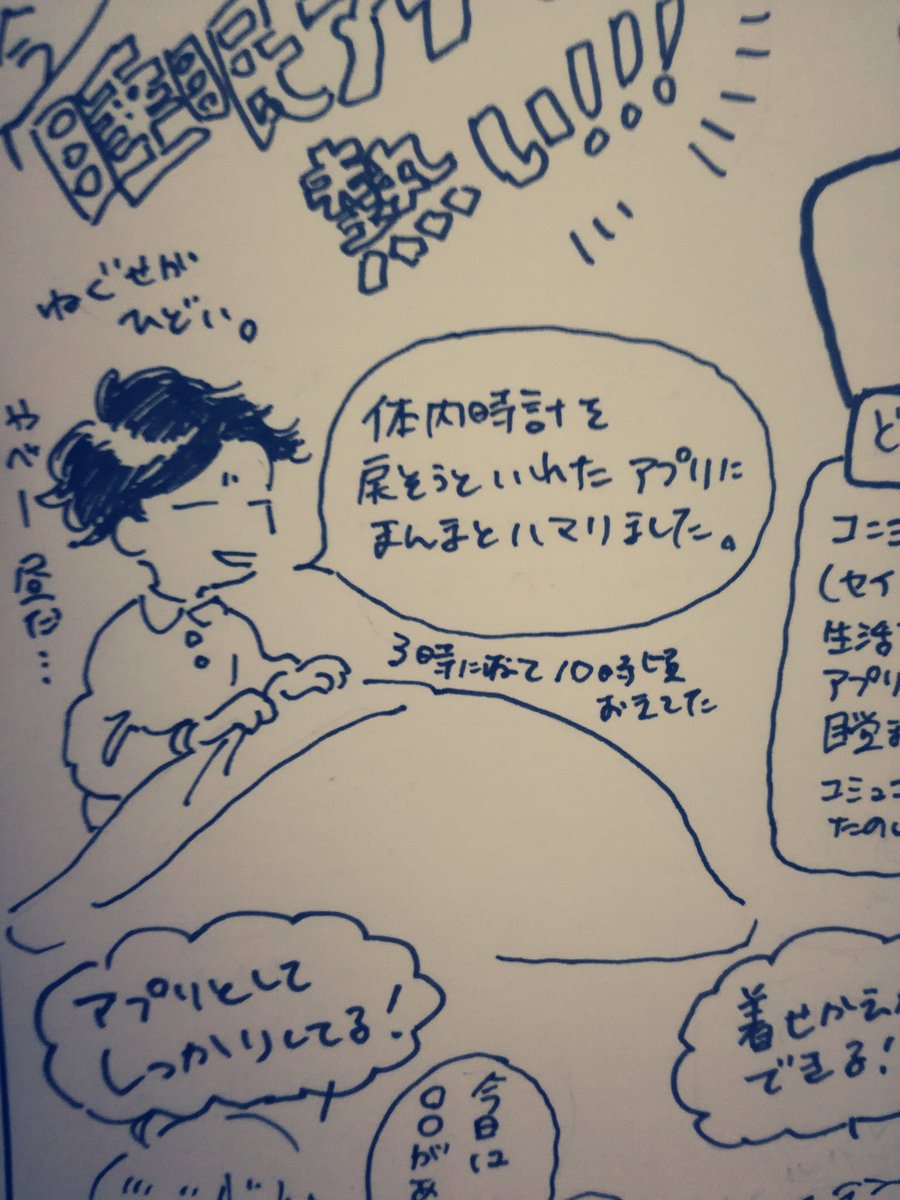 熱い!!!
ねぐせが
ひどい。
やべー昼だ…
体内時計を
戻そうといれたアプリに
まんまとハマリました。
3時にねて10時頃
おきてた
ど
コニ
(セイ
生活
アプリ
目覚ま
コミュニ
たのし
アプリとして
しっかりしてる!
着せかえ
できる!
今日は
〇〇があ